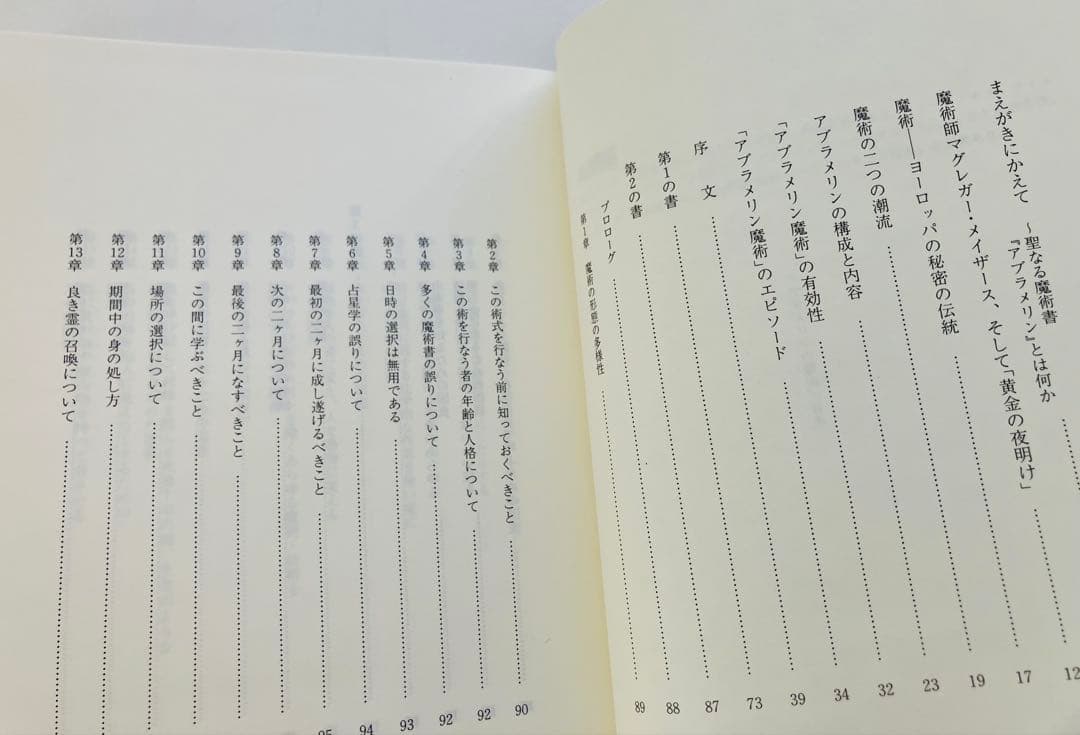 まえがきにかえて 〜聖なる魔術書
『アブラメリン』とは何か
魔術師マグレガー・メイザース、そして「黄金の夜明け」 12
魔術――ヨーロッパの秘密の伝統 17
魔術の二つの潮流 19
アブラメリンの構成と内容 23
「アブラメリン魔術」の有効性 32
「アブラメリン魔術」のエピソード 34
序 文 39
第1の書 73
第2の書 87
プロローグ 88
第1章 魔術の形態の多様性 89
第2章 この術式を行なう前に知っておくべきこと 90
第3章 この術を行なう者の年齢と人格について 92
第4章 多くの魔術書の誤りについて 92
第5章 日時の選択は無用である 93
第6章 占星学の誤りについて 94
第7章 最初の二ヶ月に成し遂げるべきこと 95
第8章 次の二ヶ月について
第9章 最後の二ヶ月になすべきこと
第10章 この間に学ぶべきこと
第11章 場所の選択について
第12章 期間中の身の処し方
第13章 良き霊の召喚について